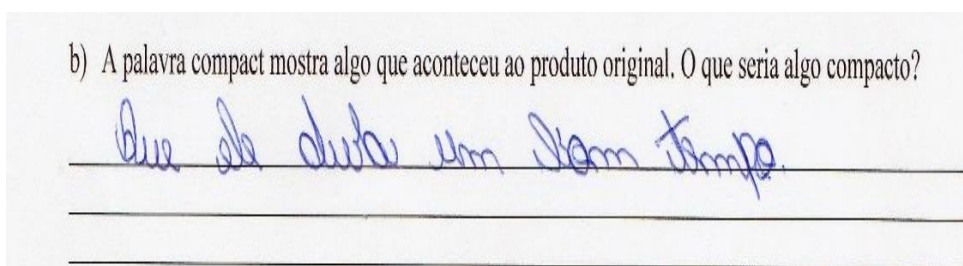 b) A palavra compact mostra algo que aconteceu ao produto original. O que seria algo compacto?
Que ele dura um bom tempo.